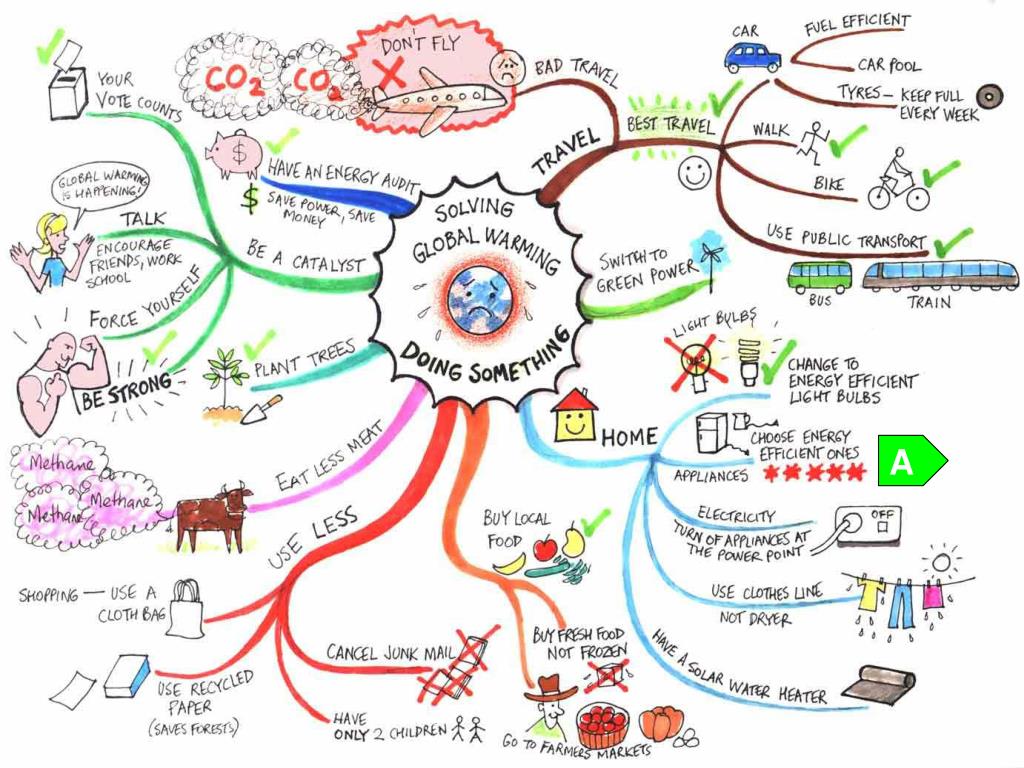 SOLVING
GLOBAL WARMING
DOING SOMETHING
YOUR
VOTE COUNTS
CO2
CO2
DON'T FLY
BAD TRAVEL
TRAVEL
BEST TRAVEL
CAR
FUEL EFFICIENT
CAR POOL
TYRES — KEEP FULL
EVERY WEEK
WALK
BIKE
USE PUBLIC TRANSPORT
BUS
TRAIN
$
HAVE AN ENERGY AUDIT
$ SAVE POWER, SAVE
MONEY
GLOBAL WARMING
IS HAPPENING!
TALK
ENCOURAGE
FRIENDS, WORK
SCHOOL
BE A CATALYST
FORCE YOURSELF
BE STRONG
PLANT TREES
SWITCH TO
GREEN POWER
LIGHT BULBS
CHANGE TO
ENERGY EFFICIENT
LIGHT BULBS
HOME
CHOOSE ENERGY
EFFICIENT ONES
APPLIANCES
A
ELECTRICITY
TURN OF APPLIANCES AT
THE POWER POINT
OFF
USE CLOTHES LINE
NOT DRYER
HAVE A SOLAR WATER HEATER
EAT LESS MEAT
Methane
Methane
Methane
USE LESS
SHOPPING — USE A
CLOTH BAG
USE RECYCLED
PAPER
(SAVES FORESTS)
CANCEL JUNK MAIL
HAVE
ONLY 2 CHILDREN
BUY LOCAL
FOOD
BUY FRESH FOOD
NOT FROZEN
GO TO FARMERS MARKETS